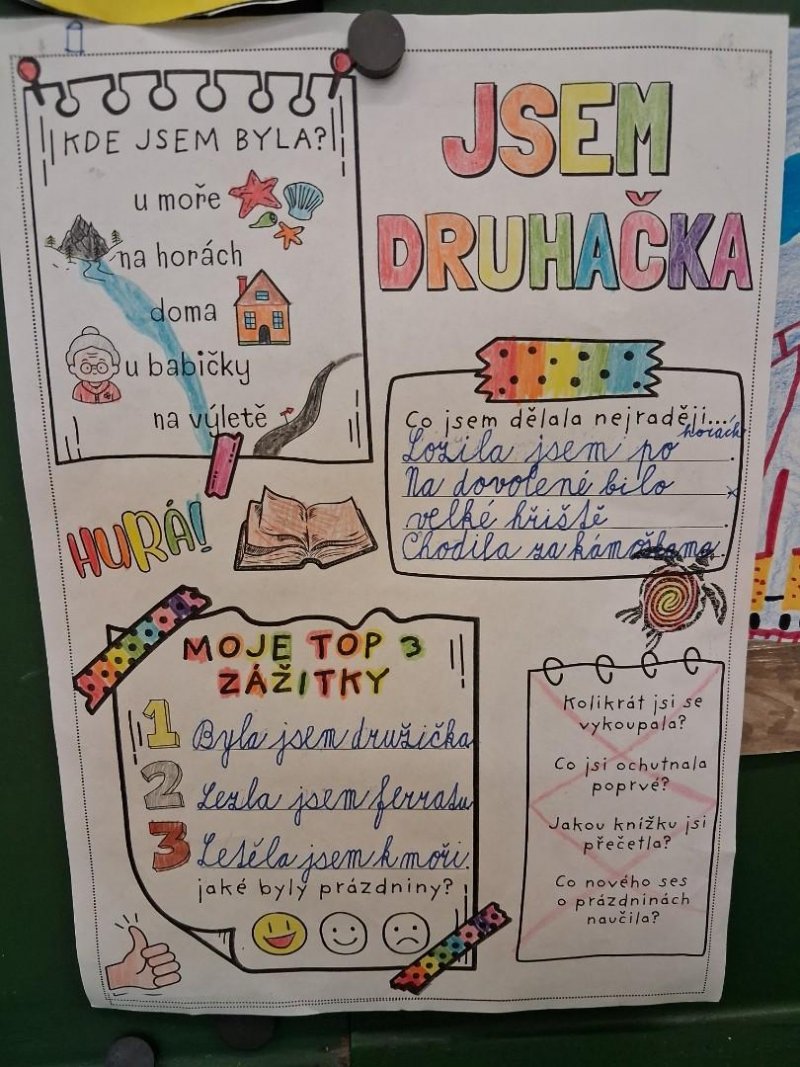 KDE JSEM BYLA?
u moře
na horách
doma
u babičky
na výletě
JSEM
DRUHAČKA
Co jsem dělala nejraději...
Lozila jsem po horách.
Na dovolené bilo
velké hřiště.
Chodila za kámoškama
HURÁ!
MOJE TOP 3
ZÁŽITKY
1 Byla jsem družička
2 Lezla jsem ferratu
3 Letěla jsem k moři.
jaké byly prázdniny?
Kolikrát jsi se
vykoupala?
Co jsi ochutnala
poprvé?
Jakou knížku jsi
přečetla?
Co nového ses
o prázdninách
naučila?